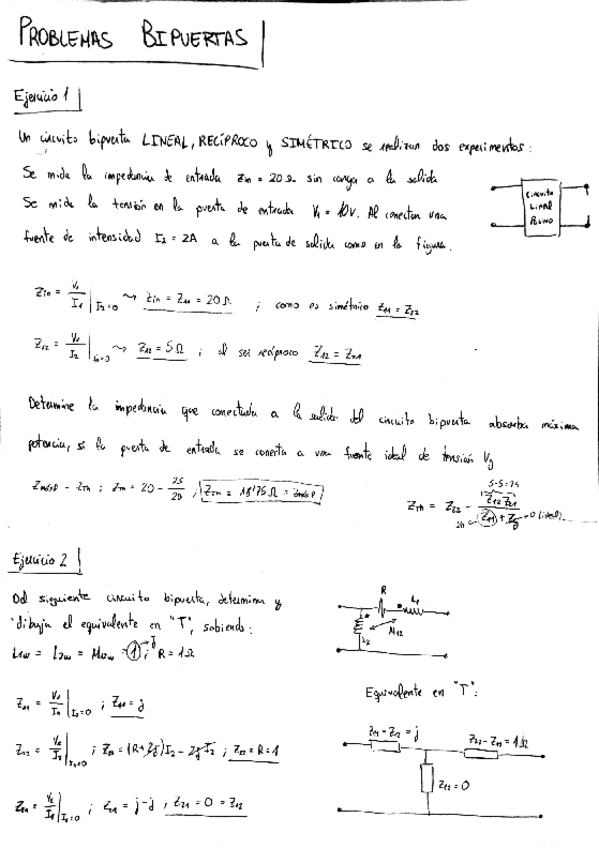 PROBLEMAS BIPUERTAS
Ejercicio 1
Un circuito bipuerta LINEAL, RECÍPROCO y SIMÉTRICO se realizan dos experimentos:
Se mide la impedancia de entrada Zin = 20 Ω sin carga a la salida
Se mide la tensión en la puerta de entrada V₁ = 10V. Al conectar una
fuente de intensidad I₂ = 2A a la puerta de salida como en la figura.
Circuito
Lineal
Pasivo
Zin = V₁/I₁ | I₂=0 ⇝ Zin = Z₁₁ = 20 Ω ; como es simétrico Z₁₁ = Z₂₂
Z₁₂ = V₁/I₂ | I₁=0 ⇝ Z₁₂ = 5 Ω ; al ser recíproco Z₁₂ = Z₂₁
Determine la impedancia que conectada a la salida del circuito bipuerta absorba máxima
potencia, si la puerta de entrada se conecta a una fuente ideal de tensión Vg
ZmáxP = ZTh ; ZTh = 20 - 25/20 ; ZTh = 18'75 Ω = ZmáxP
5·5=25
ZTh = Z₂₂ - Z₁₂Z₂₁/(Z₁₁ + Zg) → 0 (ideal)
20
Ejercicio 2
Del siguiente circuito bipuerta, determina y
dibuja el equivalente en "T", sabiendo:
L₁w = L₂w = M₁₂w = 1 j ; R = 1 Ω
R L₁
M₁₂
L₂
Z₁₁ = V₁/I₁ | I₂=0 ; Z₁₁ = j
Equivalente en "T":
Z₂₂ = V₂/I₂ | I₁=0 ; Z₂₂ = (R+2j)I₂ - 2j I₂ ; Z₂₂ = R = 1
Z₁₁ - Z₁₂ = j
Z₂₂ - Z₁₂ = 1 Ω
Z₁₂ = 0
Z₂₁ = V₂/I₁ | I₂=0 ; Z₂₁ = j - j ; Z₂₁ = 0 = Z₁₂